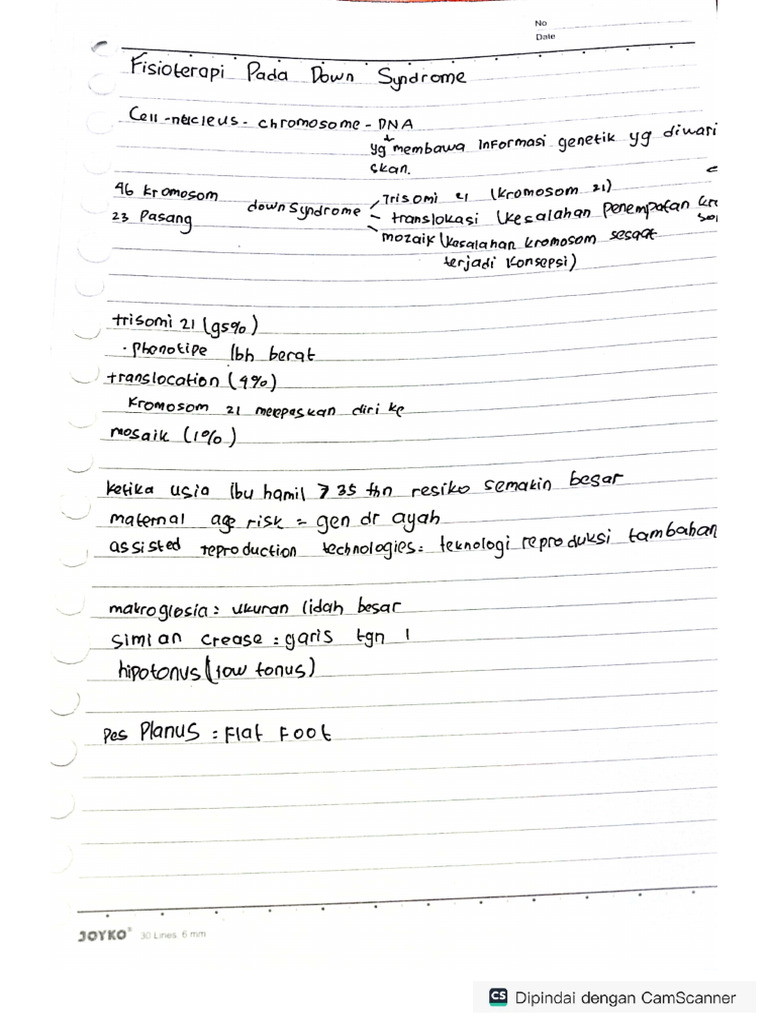 No
Date
Fisioterapi Pada Down Syndrome
Cell - nucleus - chromosome - DNA
yg membawa informasi genetik yg diwari
skan.
46 kromosom
23 Pasang
down syndrome
Trisomi 21 (kromosom 21)
translokasi (kesalahan penempatan kro
mozaik (kesalahan kromosom sesaat
terjadi konsepsi)
trisomi 21 (95%)
• phonotipe lbh berat
translocation (4%)
kromosom 21 melepaskan diri ke
mosaik (1%)
ketika usia ibu hamil > 35 thn resiko semakin besar
maternal age risk = gen dr ayah
assisted reproduction technologies: teknologi reproduksi tambahan
makroglosia: ukuran lidah besar
simian crease : garis tgn 1
hipotonus (low tonus)
Pes Planus : Flat Foot
JOYKO 30 Lines. 6 mm
CS Dipindai dengan CamScanner